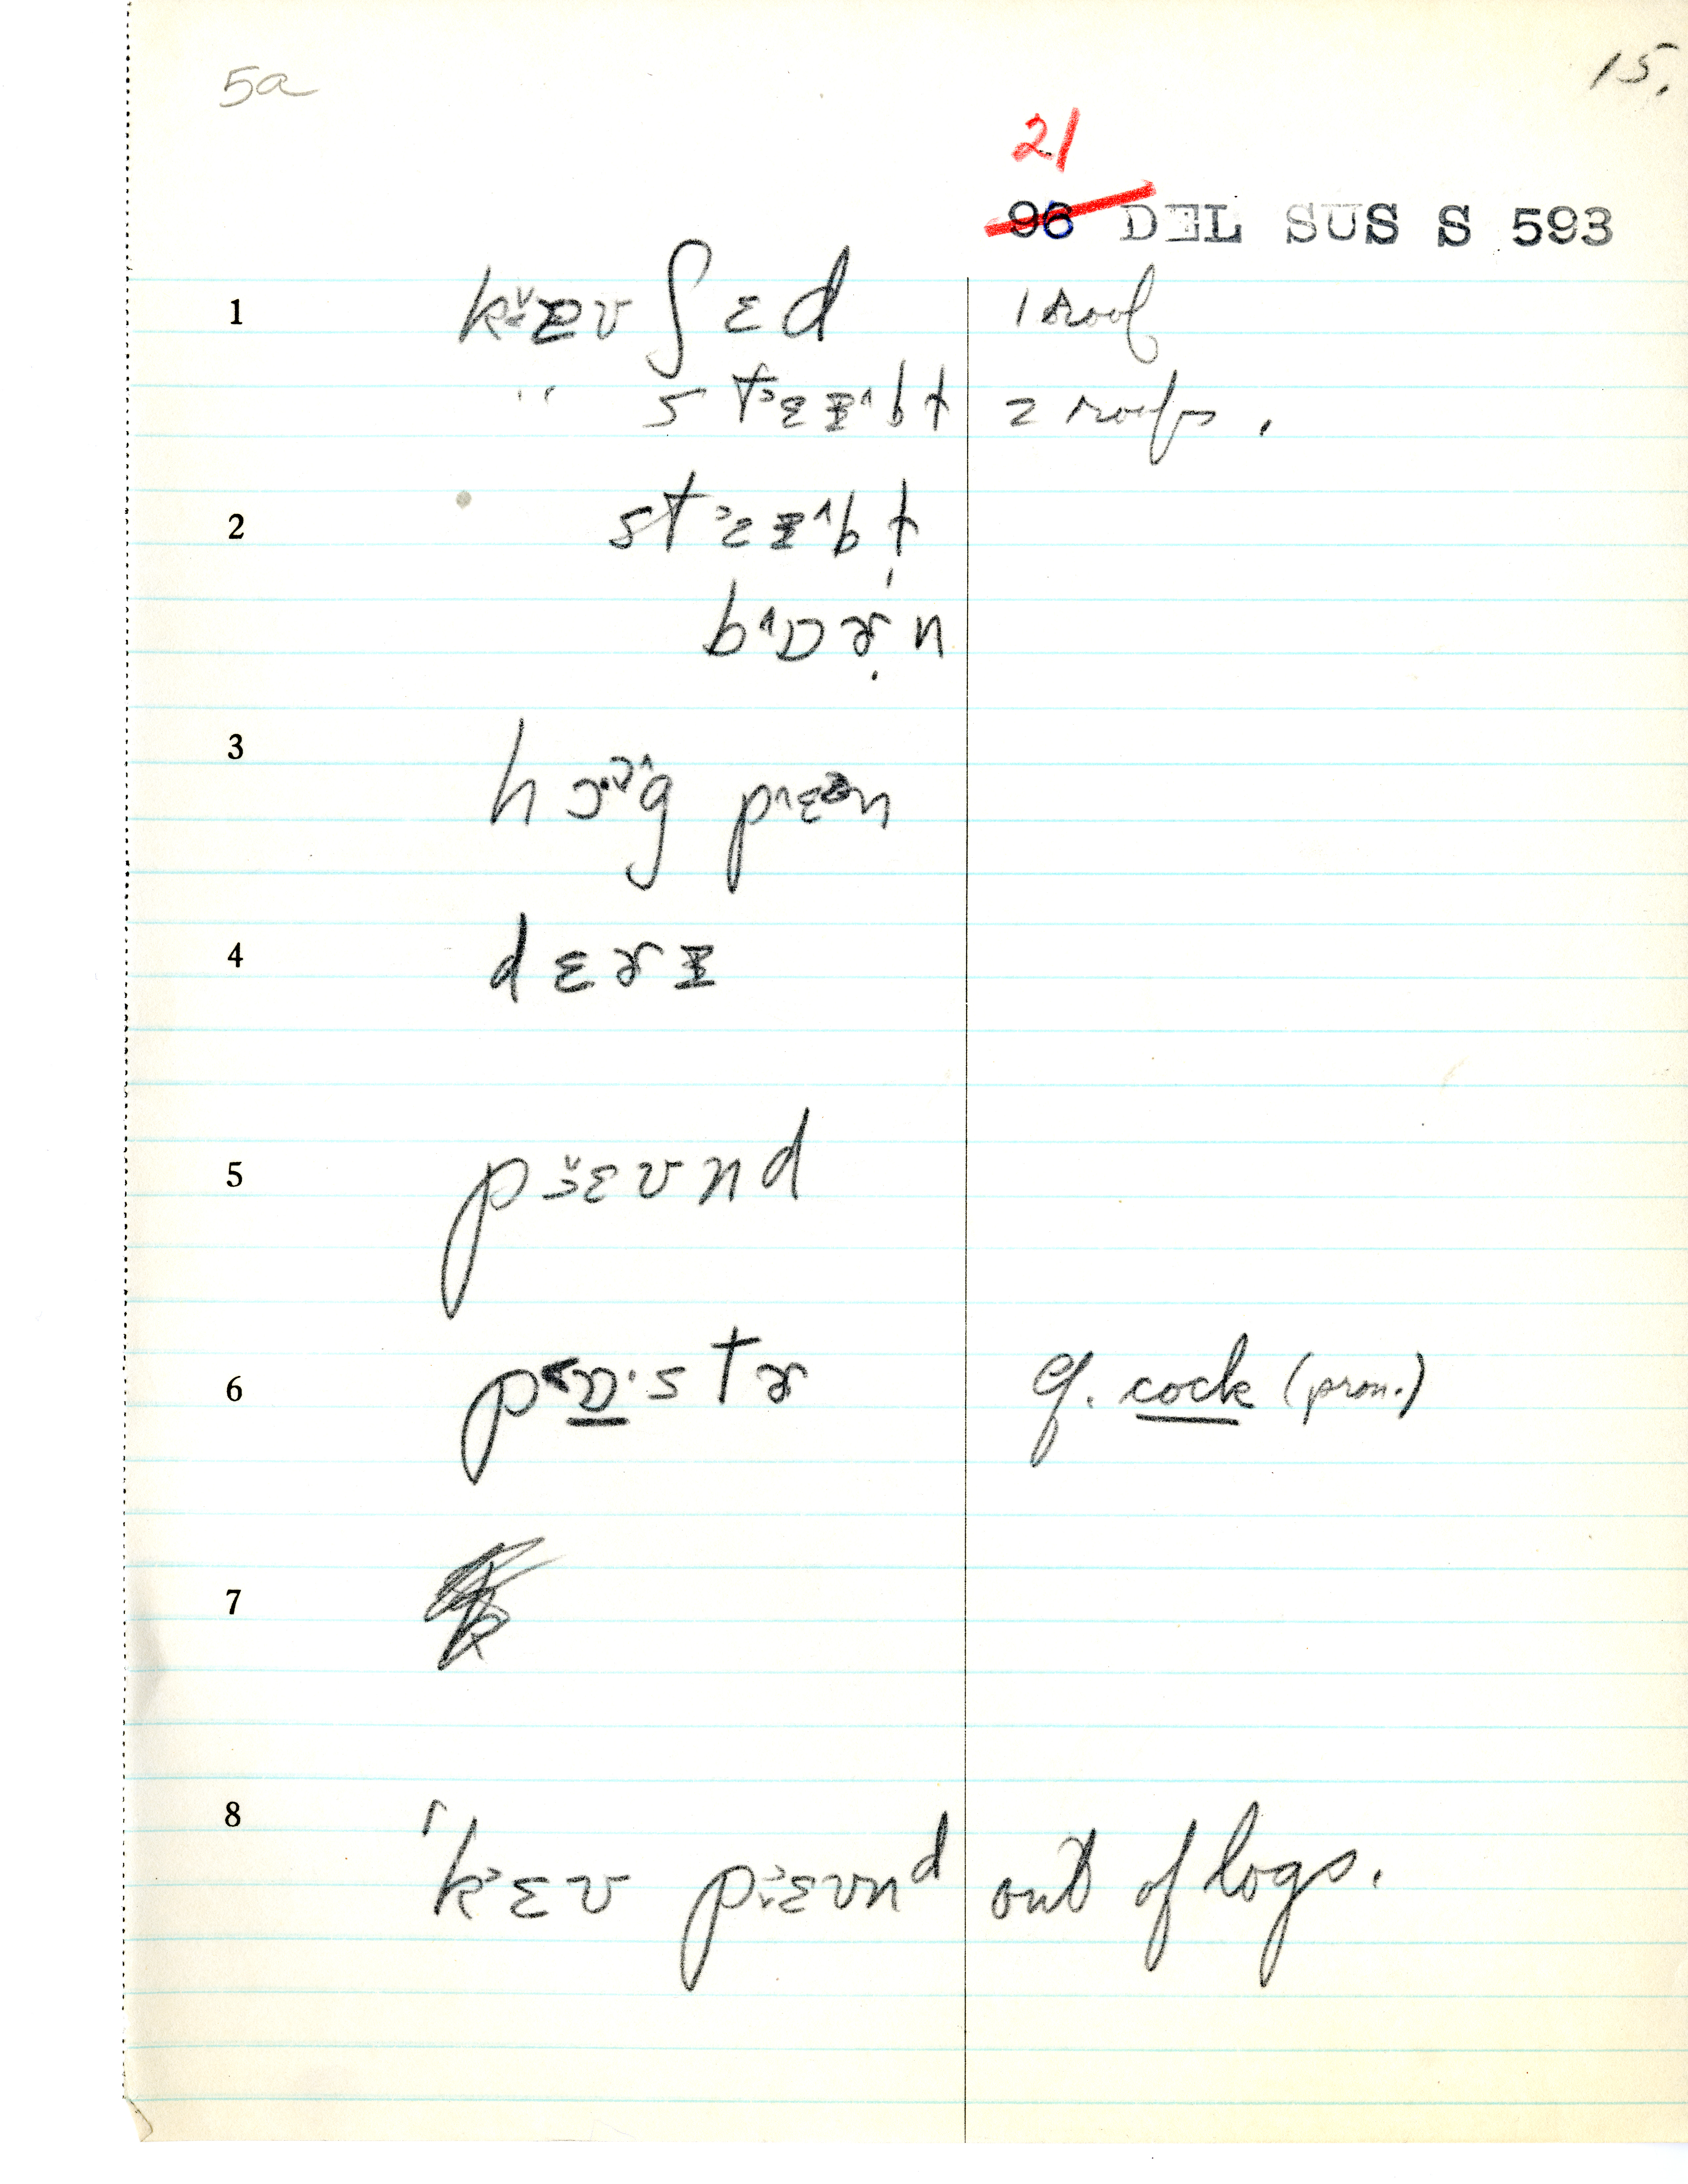 5a
15.
21
96 DEL SUS S 593
1 kɛʊ ʃɛd 1 roof
" stɛɪbɫ 2 roofs.
2 stɛɪbɫ
bɒɚn
3 hɔg pɛn
4 dɛɚɪ
5 pɛʊnd
6 pɒ·stɚ cf. cock (pron.)
7
8 'kɛʊ pɛʊnd out of logs.